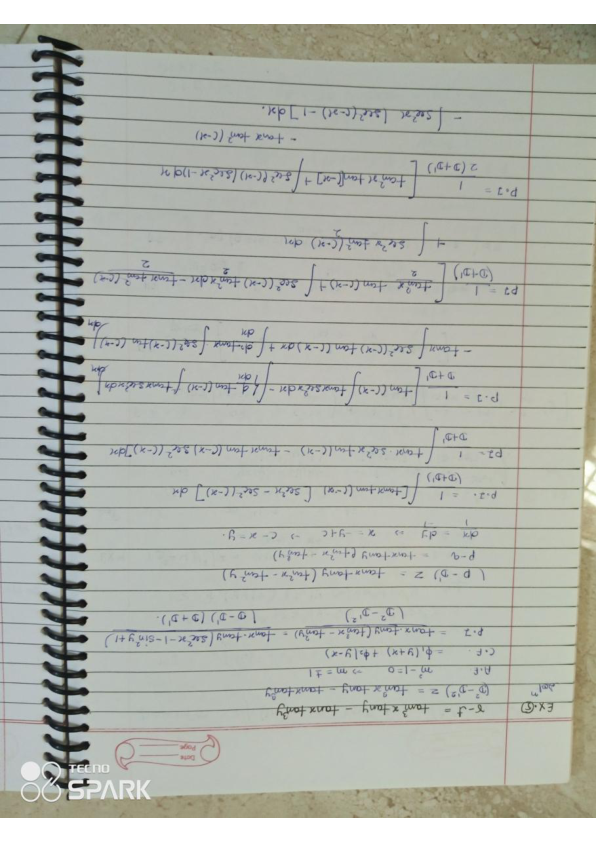 Date
Page
Ex. 5 r-t = tan³x tany - tanx tan³y
Solⁿ (D² - D'²) z = tan³x tany - tanx tan³y
A.E m² - 1 = 0 ⇒ m = ±1
C.F. = φ₁(y+x) + φ₂(y-x)
P.I = tanx tany (tan²x - tan²y) / (D² - D'²) = tanx tany (sec²x - 1 - +1) / (D-D') (D+D').
(D - D') z = tanx tany (tan²x - tan²y)
p-q = tanx tany (tan²x - tan²y)
dx/1 = dy/-1 ⇒ x = -y+c ⇒ c-x = y.
P.I. = 1/(D+D') ∫ [tanx tan(c-x) [sec²x - sec²(c-x)] dx
P.I = 1/D+D' ∫ tanx. sec²x tan(c-x) - tanx tan(c-x) sec²(c-x)] dx
P.I = 1/D+D' [tan(c-x) ∫ tanx sec²x dx - ∫ d/dx tan(c-x) ∫ tanx sec²x dx] dx
- tanx ∫ sec²(c-x) tan(c-x) dx + ∫ d/dx tanx ∫ sec²(c-x) tan(c-x)] dx
P.I = 1/(D+D') [tan²x/2 tan(c-x) + ∫ sec²(c-x) tan²x/2 dx - tanx tan²(c-x)/2
+ ∫ sec²x tan²(c-x)/2 dx
P.I = 1/2(D+D') [tan²x tan(c-x) + ∫ sec²(c-x) [sec²x - 1) dx
- tanx tan²(c-x)
- ∫ sec²x [sec²(c-x) - 1] dx.
TECNO
SPARK